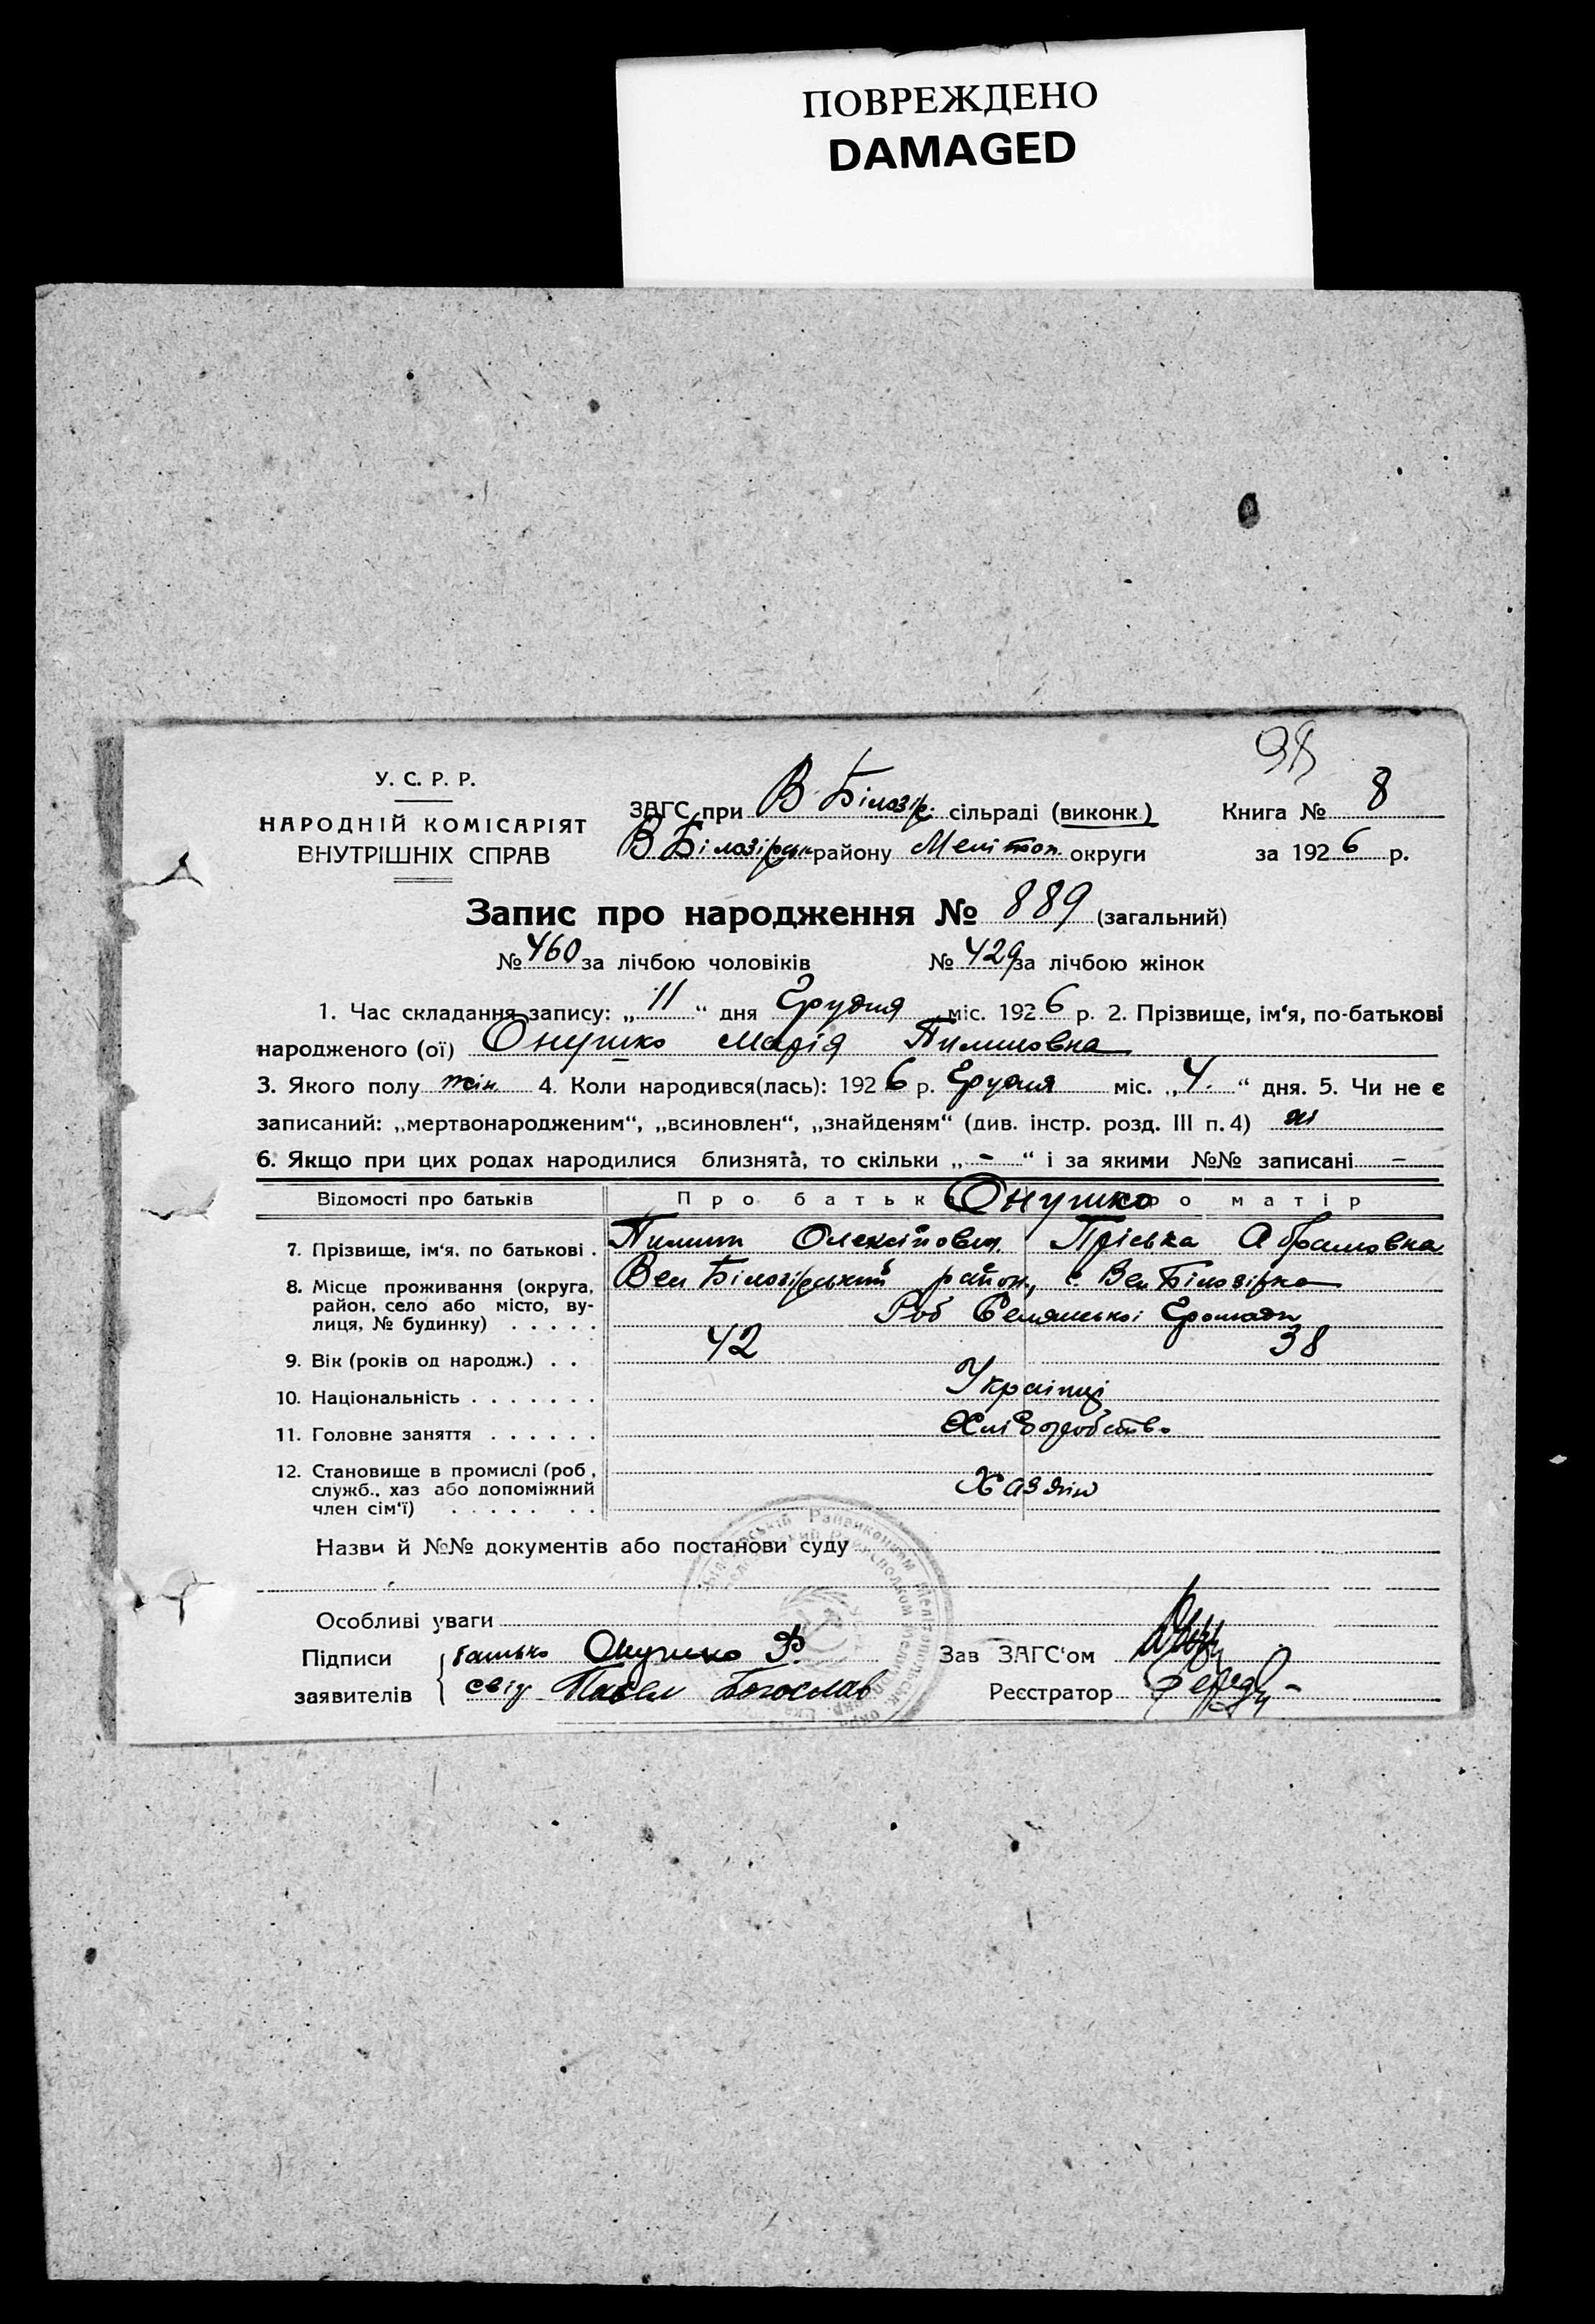 ПОВРЕЖДЕНО
DAMAGED
У. С. Р. Р.
НАРОДНІЙ КОМІСАРІЯТ
ВНУТРІШНІХ СПРАВ
ЗАГС при В Білозір. сільраді (виконк.)
В Білозірськ району Мелітоп. округи
Книга № 8
за 1926 р.
Запис про народження № 889 (загальний)
№ 460 за лічбою чоловіків № 429 за лічбою жінок
1. Час складання запису: „11“ дня Грудня міс. 1926 р. 2. Прізвище, ім‘я, по-батькові
народженого (ої) Онушко Марія Пилиповна
3. Якого полу жін. 4. Коли народився(лась): 1926 р. Грудня міс. „4.“ дня. 5. Чи не є
записаний: „мертвонародженим“, „всиновлен“, „знайденям“ (див. інстр. розд. III п. 4) ні
6. Якщо при цих родах народилися близнята, то скільки „-“ і за якими №№ записані -
Відомості про батьків Про батьк Онушко ро матір
7. Прізвище, ім‘я, по батькові . Пилип Олексійович Пріська Абрамовна
8. Місце проживання (округа, Вел Білозірський район, с. Вел Білозірка
район, село або місто, ву-
лиця, № будинку) . . . . . Роб Селянської Громади
9. Вік (років од народж.) . . 42 38
10. Національність . . . . . . . Українці
11. Головне заняття . . . . . . Хліборобство
12. Становище в промислі (роб.,
служб., хаз або допоміжний Хазяїн
член сім‘ї) . . . . . . .
Назви й №№ документів або постанови суду
Особливі уваги
Підписи батько Онушко Ф. Зав ЗАГС‘ом
заявителів свід Павел Богослав Реєстратор